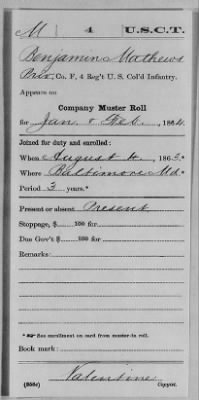 M 4 U.S.C.T.
Benjamin Mathews
Priv., Co. F, 4 Reg't U. S. Col'd Infantry.
Appears on
Company Muster Roll
for Jan & Feb, 1864.
Joined for duty and enrolled:
When August 4, 1863.*
Where Baltimore Md*
Period 3 years.*
Present or absent Present
Stoppage, $ 100 for
Due Gov't $ 100 for
Remarks:
* See enrollment on card from muster-in roll.
Book mark:
Valentine
(358d) Copyist.